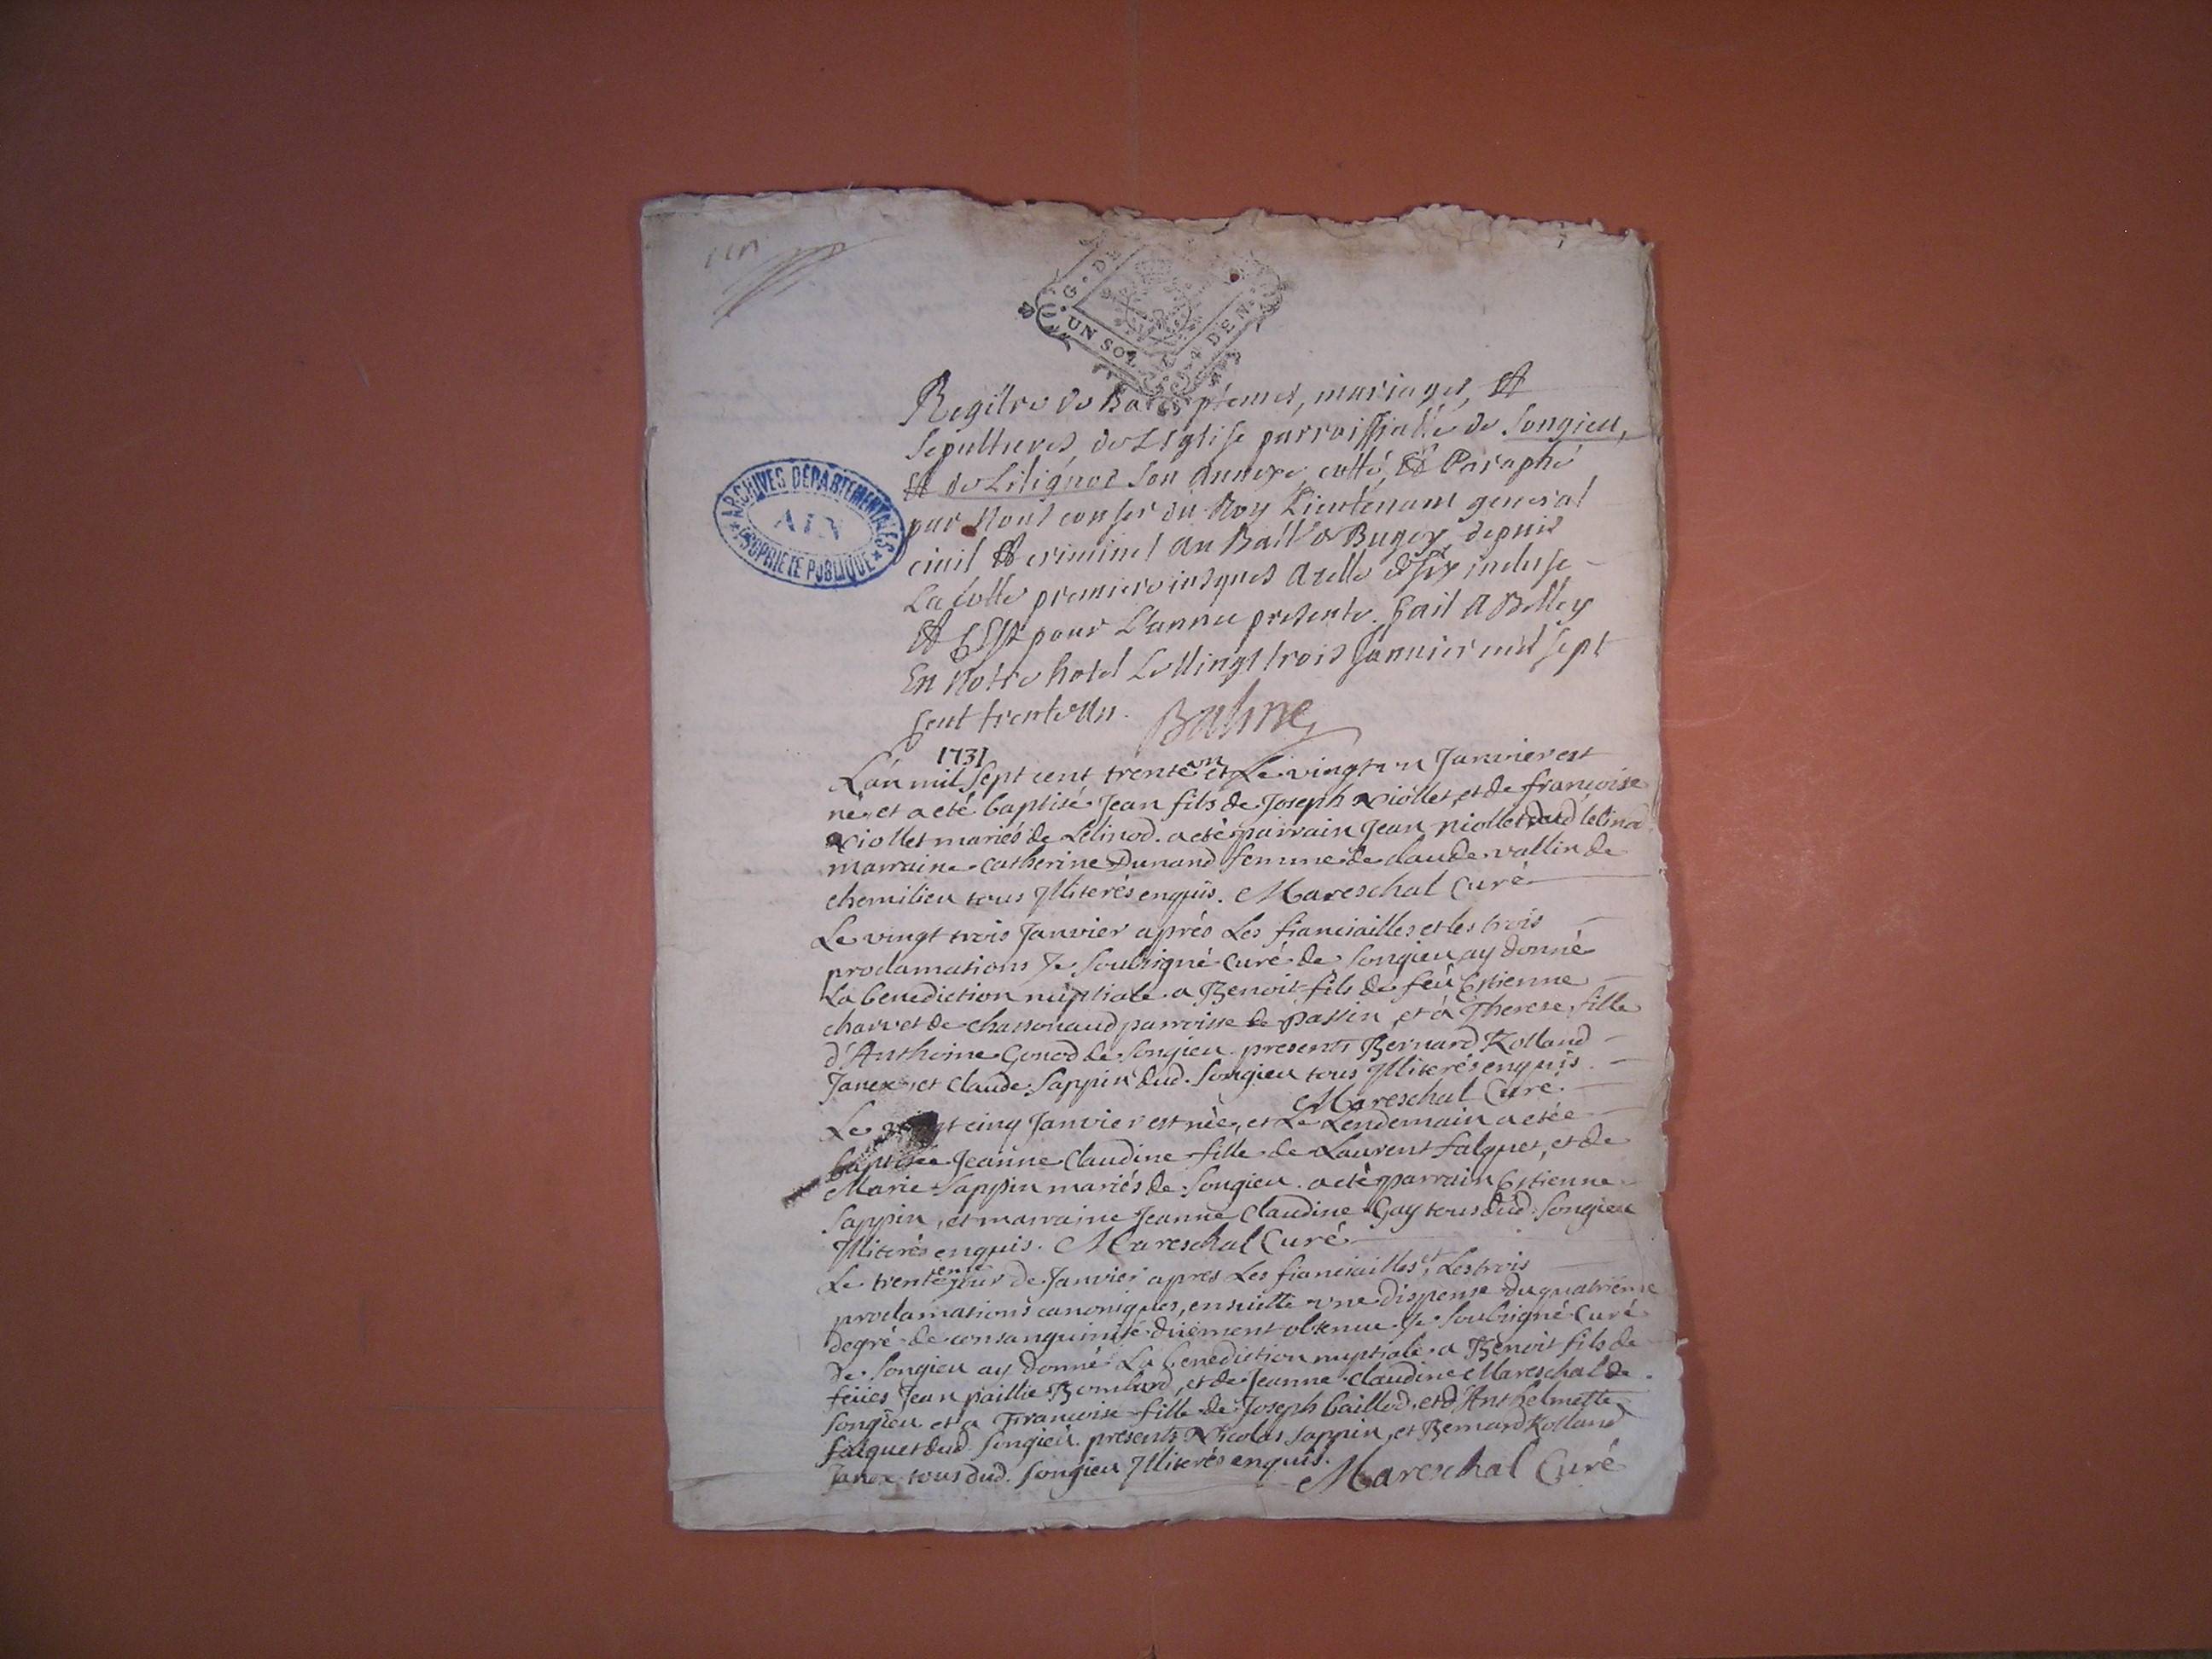 G. DE
UN SOL
4 DEN.
ARCHIVES DEPARTEMENTALES
AIN
PROPRIETE PUBLIQUE
Regitre de Baptemes, mariages, Et
sepultures de L'Eglise parroissialle de Songieu,
Et de Lilignod son annexe, cotté, Et Paraphé
par Nous conser du Roy Lieutenant general
civil Et criminel au Ball de Bugey, depuis
La Cotte premiere jusques a celle de six incluse
Et C'Est pour L'année presente. fait a Belley
En Notre hotel Le Vingt trois Janvier mil sept
Cent trente Un.
1731
L'an mil sept cent trente un et Le vingt un Janvier est
né, et a eté baptisé Jean fils de Joseph Niollet, et de françoise
Niollet mariés de Lelinod. a eté parrain Jean Niollet dud lelinod
marraine Catherine Dunand femme de claude vallin de
chemilieu tous Illiterés enquis. Mareschal Curé
Le vingt trois Janvier aprés Les fianciailles et les trois
proclamations Je soubsigné Curé de Songieu ay donné
La benediction nuptiale a Benoit fils de feu Estienne
charvet de chassonaud parroisse de passin, et à Therese fille
d'Anthoine Gonod de Songieu. presents Bernard Rolland
Janex, et Claude Sappin dud. Songieu tous Illiterés enquis.
Mareschal Curé.
Le vingt cinq Janvier est née, et Le Lendemain a etée
baptisée Jeanne Claudine fille de Laurent falquet, et de
Marie Sappin mariés de Songieu. a eté parrain Estienne
Sappin, et marraine Jeanne Claudine Gay tous dud. Songieu
Illiterés enquis. Mareschal Curé
Le trentieme jour de Janvier apres Les fianciailles, et Les trois
proclamations canoniques, ensuitte une dispense du quatrieme
degré de consanguinité düement obtenue Je soubsigné Curé
de Songieu ay donné La benediction nuptiale a Benoit fils de
feües Jean paillie Bombard, et de Jeanne Claudine Mareschal de
Songieu et a Francoise fille de Joseph baillod, et d'Anthelmette
falquet dud. Songieu. presents Nicolas Sappin, et Bernard Rolland
Janex tous dud. Songieu Illiterés enquis.
Mareschal Curé